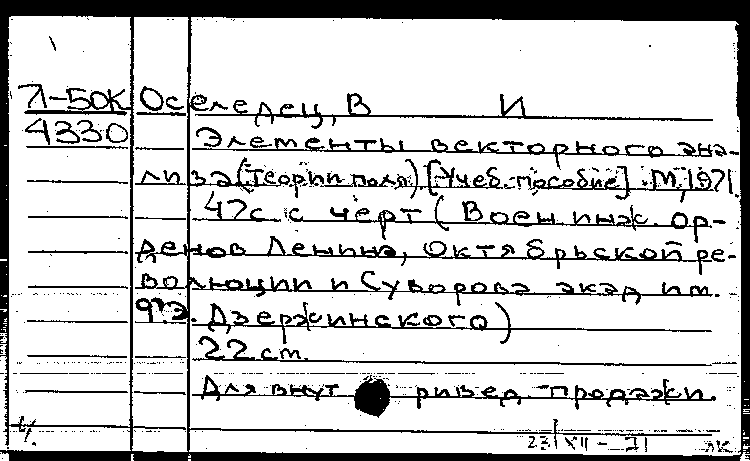 Л-50К Оселедец, В И
4330 Элементы векторного ана-
лиза (Теория поля) [Учеб. пособие]. М., 1971.
47с с черт (Воен инж. ор-
денов Ленина, Октябрьской ре-
волюции и Суворова акад им.
Ф.Э. Дзержинского)
22 см.
Для внут ривед продажи.
Ч. 23/XII - 71 ЛК